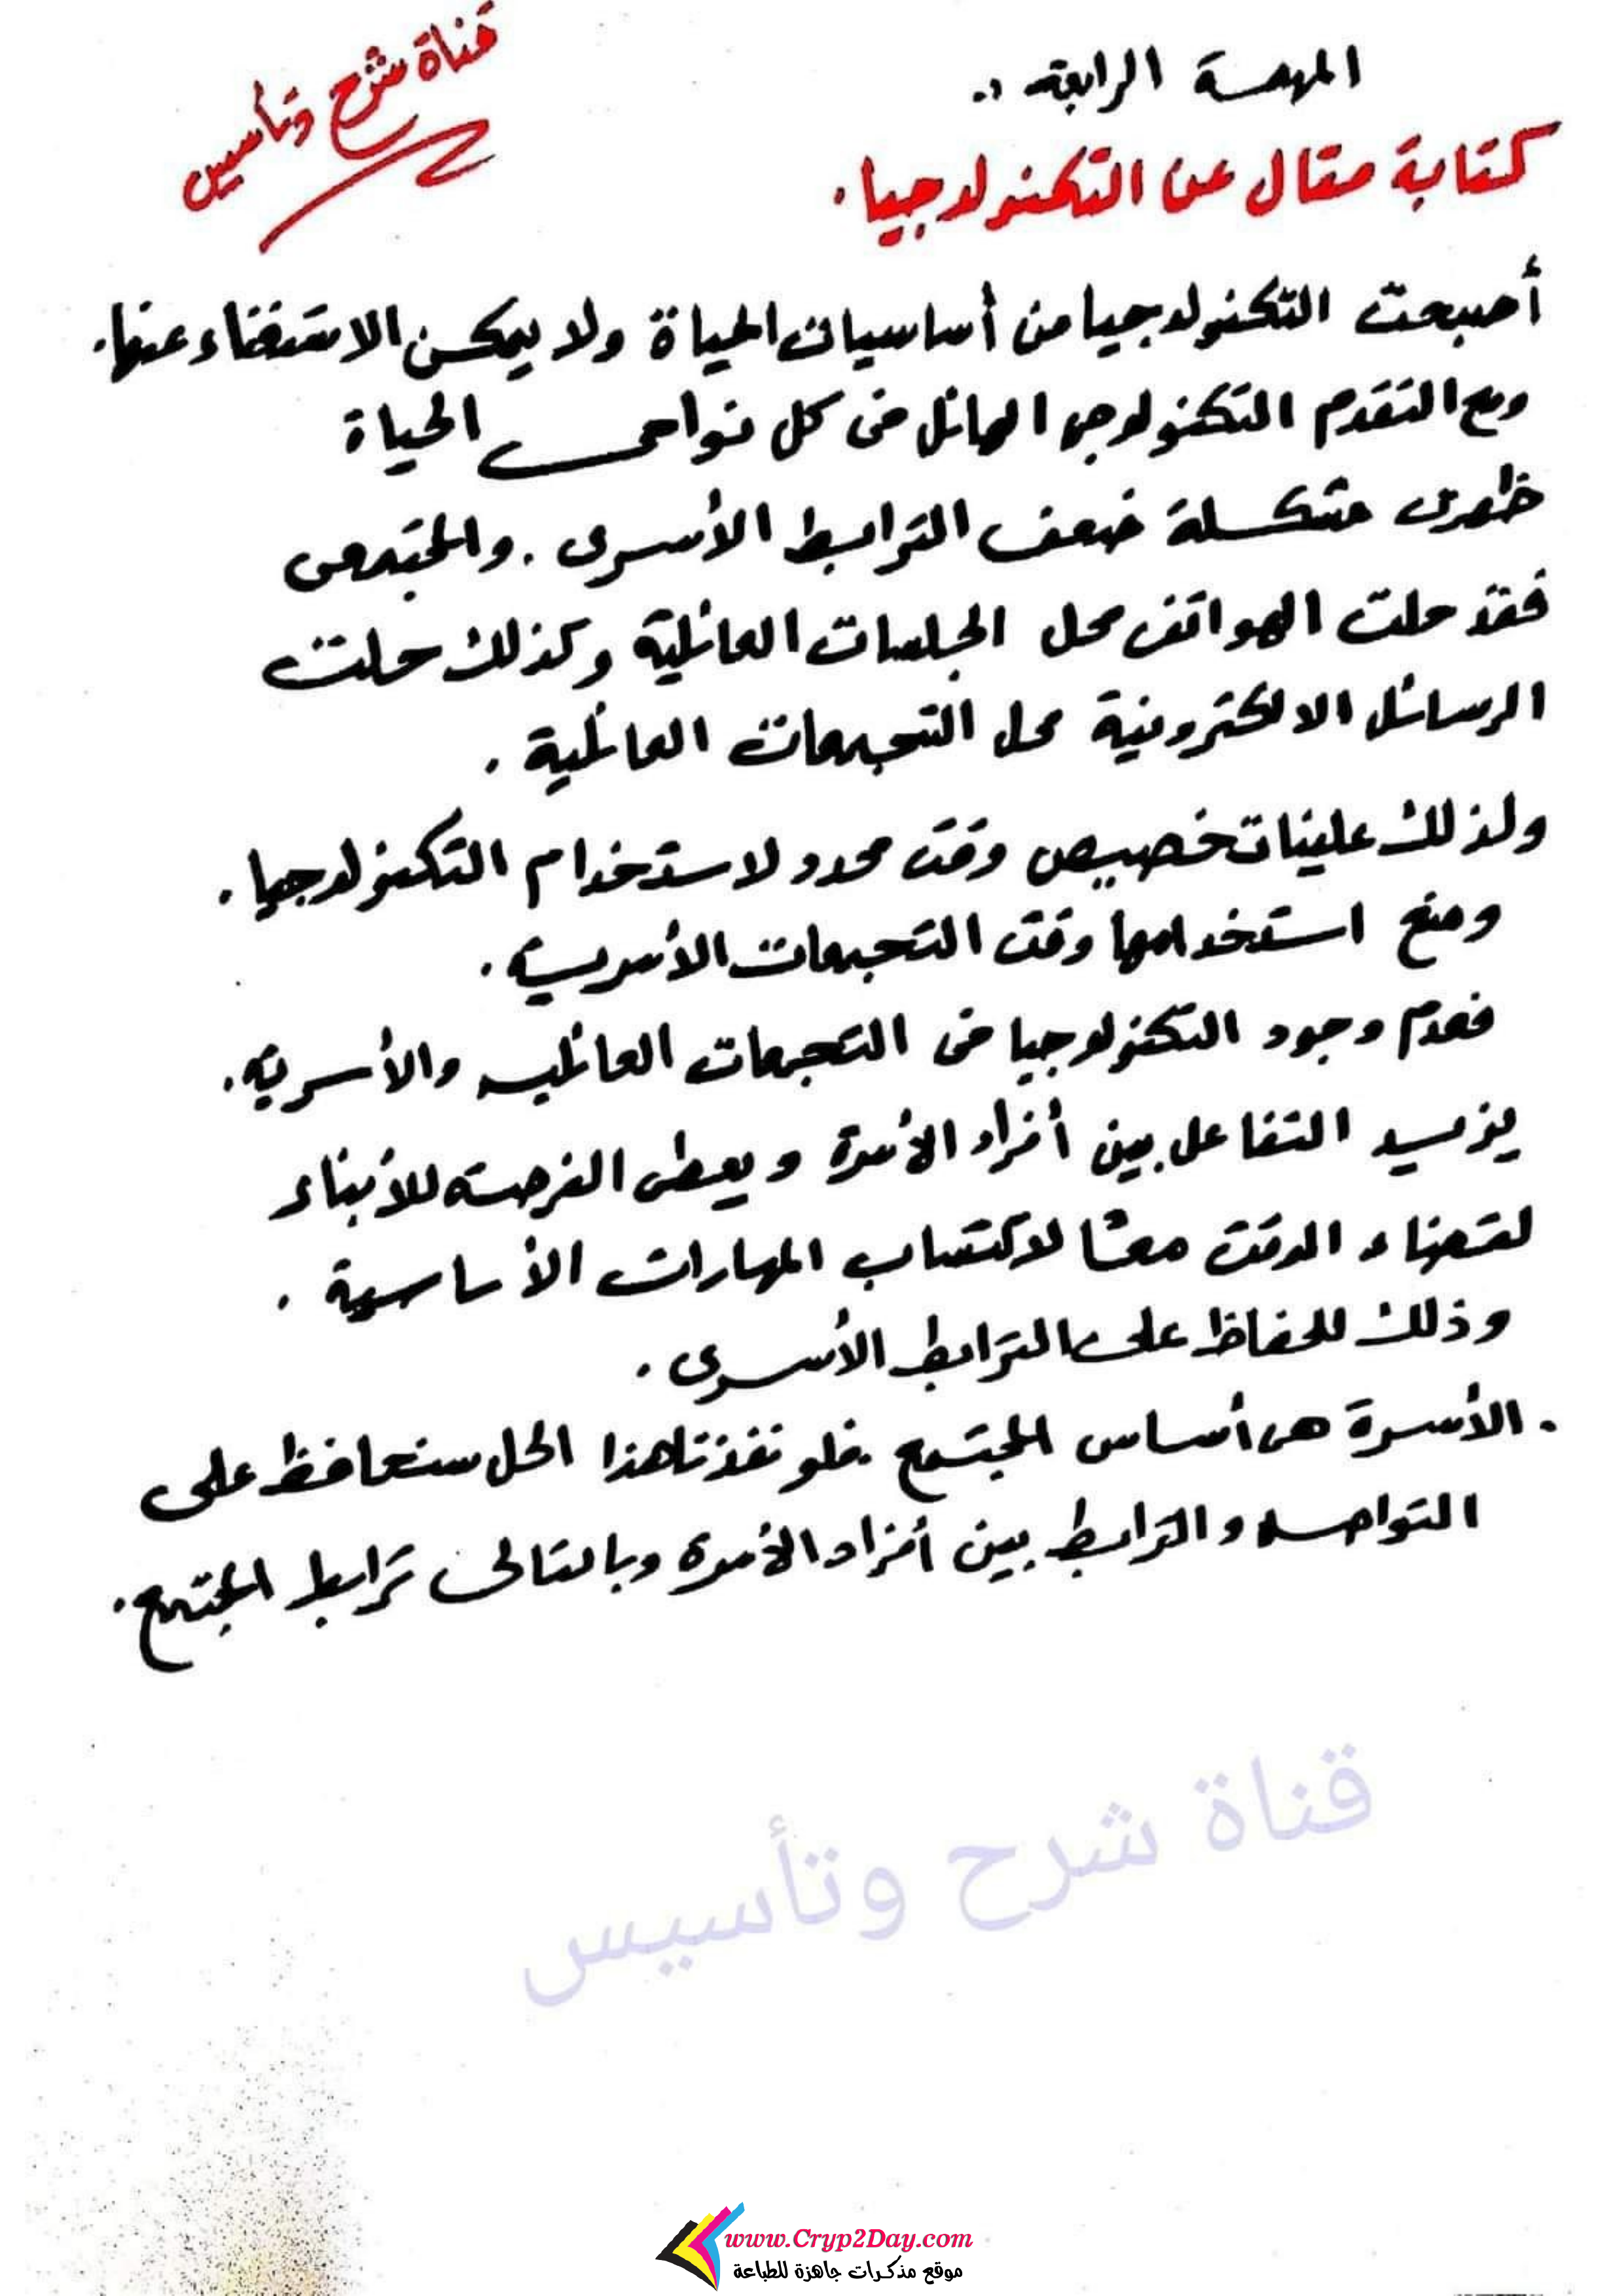 قناة شرح وتأسيس
المهمة الرابعة :.
كتابة مقال عن التكنولوجيا .
أصبحت التكنولوجيا من أساسيات الحياة ولا يمكن الاستغناء عنها.
ومع التقدم التكنولوجى الهائل فى كل نواحى الحياة
ظهرت مشكلة ضعف الترابط الأسرى . والمجتمعى
فقد حلت الهواتف محل الجلسات العائلية وكذلك حلت
الرسائل الالكترونية محل التجمعات العائلية .
ولذلك علينا تخصيص وقت محدد لاستخدام التكنولوجيا .
ومنع استخدامها وقت التجمعات الأسرية .
فعدم وجود التكنولوجيا فى التجمعات العائليه والأسرية .
يزيد التفاعل بين أفراد الأسرة ويعطى الفرصة للأبناء
لقضاء الوقت معًا لاكتساب المهارات الأساسية .
وذلك للحفاظ على الترابط الأسرى .
. الأسرة هى أساس المجتمع فلو نفذنا هذا الحل سنحافظ على
التواصل والترابط بين أفراد الأسرة وبالتالى ترابط المجتمع .
قناة شرح وتأسيس
www.Cryp2Day.com
موقع مذكرات جاهزة للطباعة